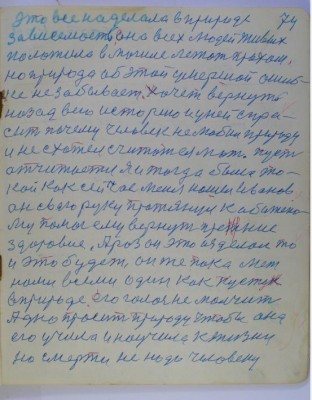 74
Это все наделала в природе
зависемость она всех людей живых
положила в могиле лежат прахом,
но природа об этой умершой ошиб-
не забывает, хочет вернуть
назад всю историю и у ней спра-
сит почему человек не любил природу
и не схотел считатся пусть
отчитается Я и тогда была то-
кой как сейчас меня нашел Иванов
он свою руку протянул к
му помог ему вернуть прежние
здоровие, Араз он это сделал то
и это будет, он же пока меж
нами всеми один как
в природе, его голос не молчит
Адно просить природу чтобы она
его учила и научила к жизни
но смерти не надо человеку